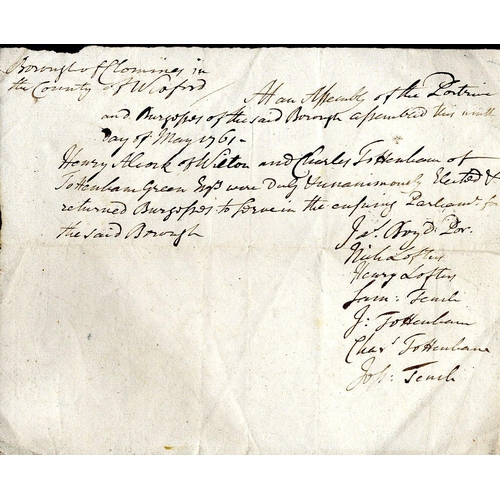 Borough of Clomines in
the County of Wexford
At an Assembly of the Portrieve
and Burgesses of the said Borough assembled this ninth
Day of May 1761-
Henry Alcock of Wilton and Charles Tottenham of
Tottenham Green Esqrs were Duly & unanimously Elected &
returned Burgesses to serve in the ensuing Parliamt. for
the said Borough
Jas. Boyd Por.
Nich Loftus
Henry Loftus
Sam: Tench
J: Tottenham
Chars Tottenham
Jos: Tench